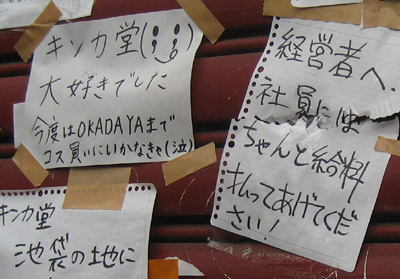 キンカ堂(;_;)
大好きでした
今度はOKADAYAまで
コス買いにいかなきゃ(泣)
経営者へ、
社員には
ちゃんと給料
払ってあげてくだ
さい!
キンカ堂
池袋の土地に